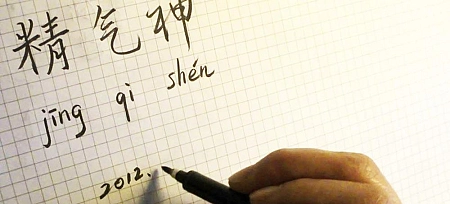 精气神
jīng qì shén
2012.